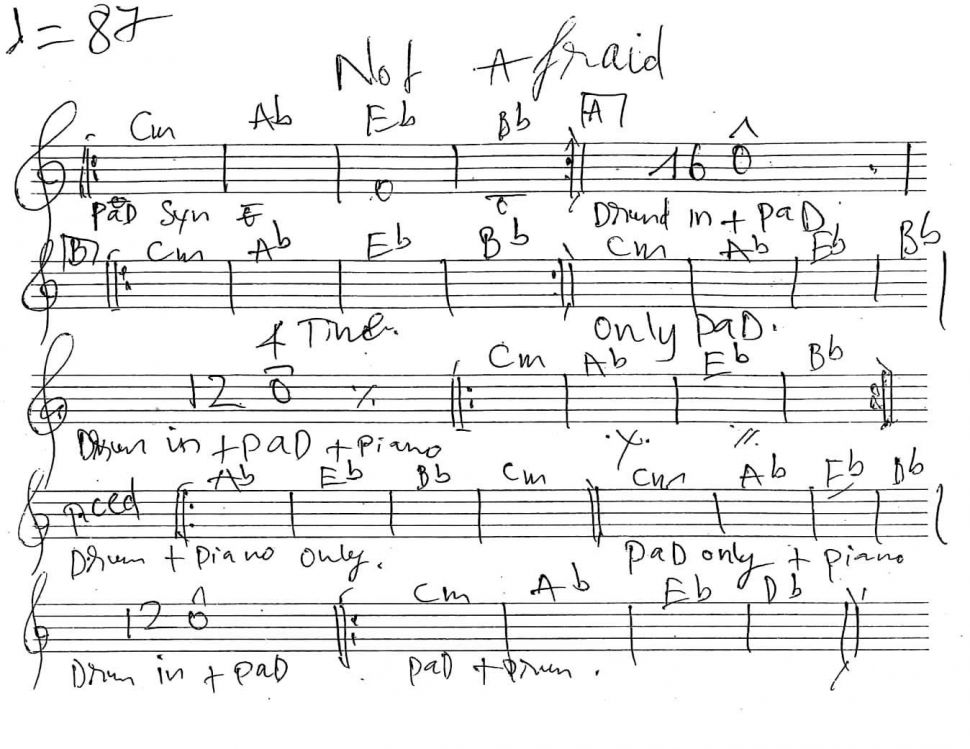 ♩ = 87
Not Afraid
Cm Ab Eb Bb A
16
PaD Syn Drund in + PaD
B Cm Ab Eb Bb Cm Ab Eb Bb
4 Time. Only PaD.
Cm Ab Eb Bb
12 ٪
Drum in + PaD + Piano
Ab Eb Bb Cm Cm Ab Eb Bb
Drum + Piano Only. PaD only + Piano
Cm Ab Eb Db
12
Drum in + PaD PaD + Drum.